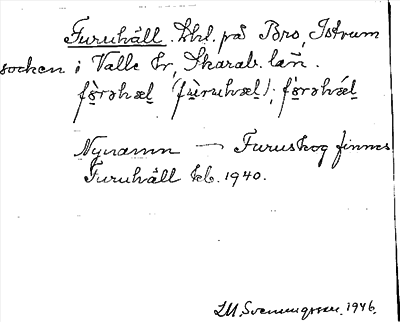 Furuhäll. Lhl. på Bro, Istrum
socken i Valle hr, Skarab. län.
fo̤rəhæl (fu̇ruhæl); fo̤rəhǽl
Nynamn — Furuskog finnes
Furuhäll kb. 1940.
I.M. Svenningsson. 1946.